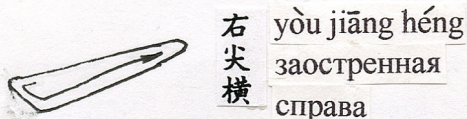 右尖横
yòu jiāng héng
заостренная
справа